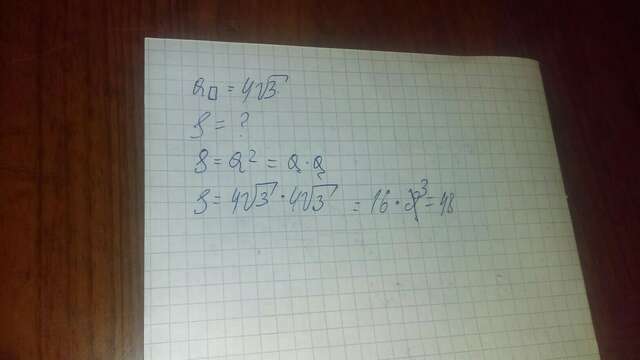 a□ = 4√3
S = ?
S = a² = a · a
S = 4√3 · 4√3 = 16 · 3 = 48